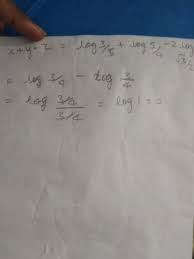 x+y-z = log 3/5 + log 5/4 - 2 log √3/2
= log 3/4 - log 3/4
= log (3/4)/(3/4) = log 1 = 0